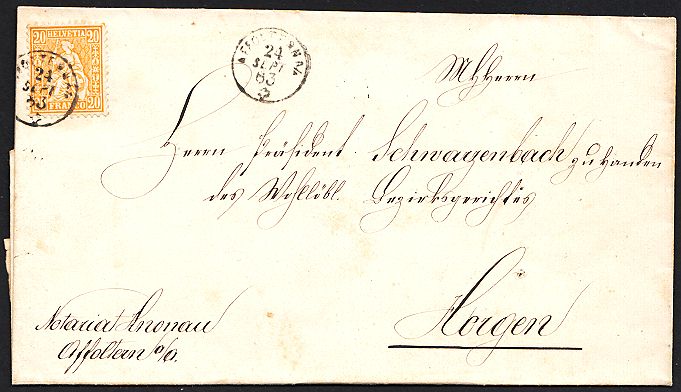 20 HELVETIA 20
FRANCO 20
24
SEPT
63
AFFOLTERN A/A
24
SEPT
63
MhHerrn
Herrn Präsident Schwarzenbach zu Handen
des Wohllöbl. Bezirksgerichtes
Horgen
Notariat Knonau
Affoltern a/a.